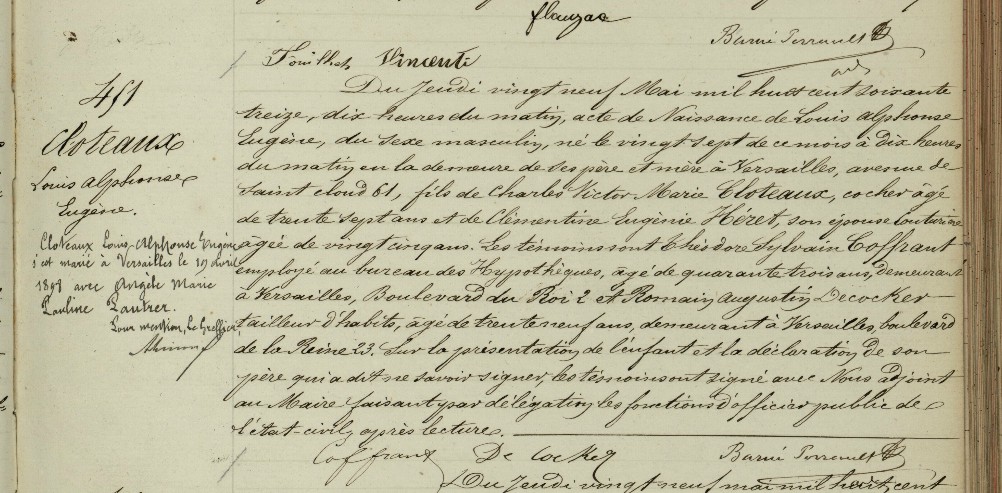 flauzac
Barué Perrault
Fouilhet Vincenti
adj
451
Cloteaux
Louis alphonse
Eugène.
Cloteaux Louis-Alphonse Eugène
s'est marié à Versailles le 19 avril
1898 avec Angèle Marie
Pauline
Pour mention, Le Greffier,
Du Jeudi vingt neuf Mai mil huit cent soixante
treize, dix heures du matin, acte de Naissance de Louis alphonse
Eugène, du sexe masculin, né le vingt sept de ce mois à dix heures
du matin en la demeure de ses père et mère à Versailles, avenue de
Saint cloud 61, fils de Charles Victor Marie Cloteaux, cocher âgé
de trente sept ans et de Clémentine Eugénie Héret, son épouse couturière
agée de vingt cinq ans. Les témoins sont Théodore Sylvain Coffrant
employé au bureau des Hypothèques, âgé de quarante trois ans, demeurant
à Versailles, Boulevard du Roi 2 et Romain augustin Decocker
tailleur d'habits, âgé de trente neuf ans, demeurant à Versailles, boulevard
de la Reine 23. Sur la présentation de l'enfant et la déclaration de son
père qui a dit ne savoir signer, les témoins ont signé avec Nous adjoint
au Maire faisant par délégation les fonctions d'officier public de
l'état-civil, après lecture.
Coffrant De Cocker Barué Perrault
Du Jeudi vingt neuf mai mil huit cent